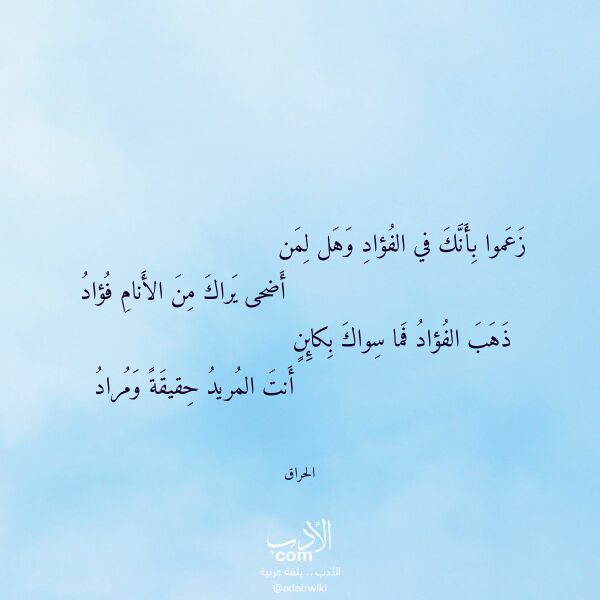 زَعَموا بِأَنَّكَ في الفُؤادِ وَهَل لِمَن
أَضحى يَراكَ مِنَ الأَنامِ فُؤادُ
ذَهَبَ الفُؤادُ فَما سِواكَ بِكائِنٍ
أَنتَ المُريدُ حِقيقَةً وَمُرادُ
الحراق
الأدب
com
الأدب .. بلغة عربية
@adabwiki